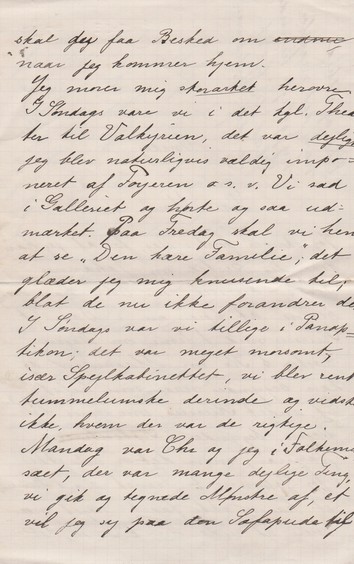 skal jeg faa Besked om endnu
naar jeg kommer hjem.
Jeg morer mig storartet herovre
I Søndags vare vi i det kgl. Thea
ter til Valkyrien, det var dejligt
jeg blev naturligvis vældig impo-
neret af Foyeren o s. v. Vi sad
i Galleriet og hørte og saa ud-
mærket. Paa Fredag skal vi hen
at se „Den kære Familie“; det
glæder jeg mig knusende til,
blot de nu ikke forandrer de
I Søndags var vi tillige i Panop-
tikon; det var meget morsomt,
især Spejlkabinettet, vi blev rent
tummelumske derinde og vidste
ikke, hvem der var de rigtige.
Mandag var Chr og jeg i Folkemu
sæet, der var mange dejlige Ting,
vi gik og tegnede Mønstre af, et
vil jeg sy paa den Sofapude til